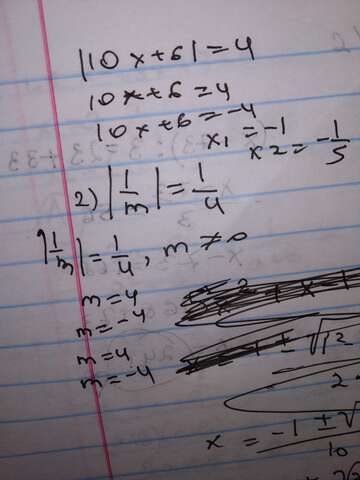 |10x+6|=4
10x+6=4
10x+6=-4
x1=-1 x2=-1/5
2) |1/m|=1/4
|1/m|=1/4, m≠0
m=4
m=-4
m=4
m=-4
x = -1±√
10